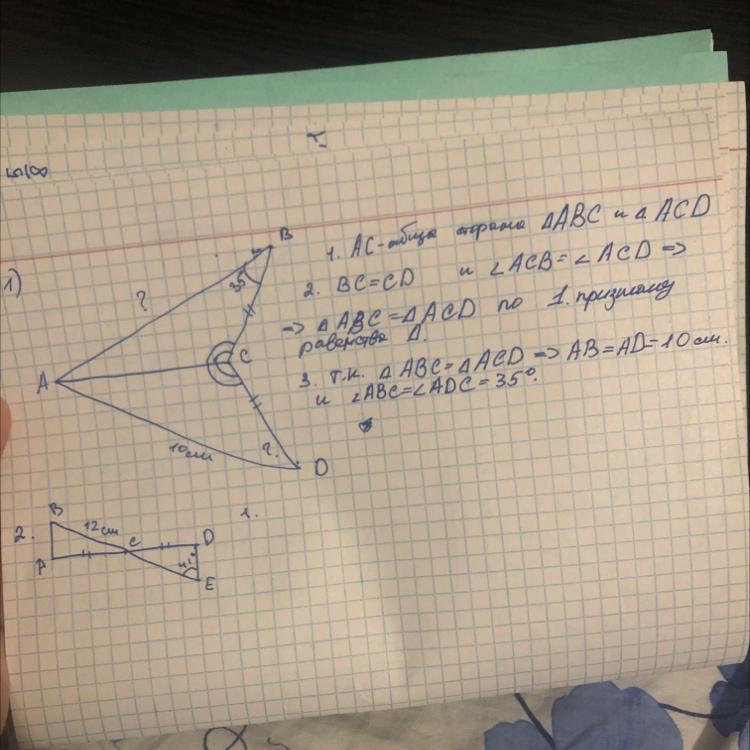 1)
B
35°
?
C
A
10см
?
D
1. AC-общая сторона ΔABC и ΔACD
2. BC=CD и ∠ACB=∠ACD =>
=> ΔABC=ΔACD по 1. признаку
равенства Δ.
3. т.к. ΔABC=ΔACD => AB=AD=10см.
и ∠ABC=∠ADC=35°.
2.
B
12см
C
D
A
E
1.